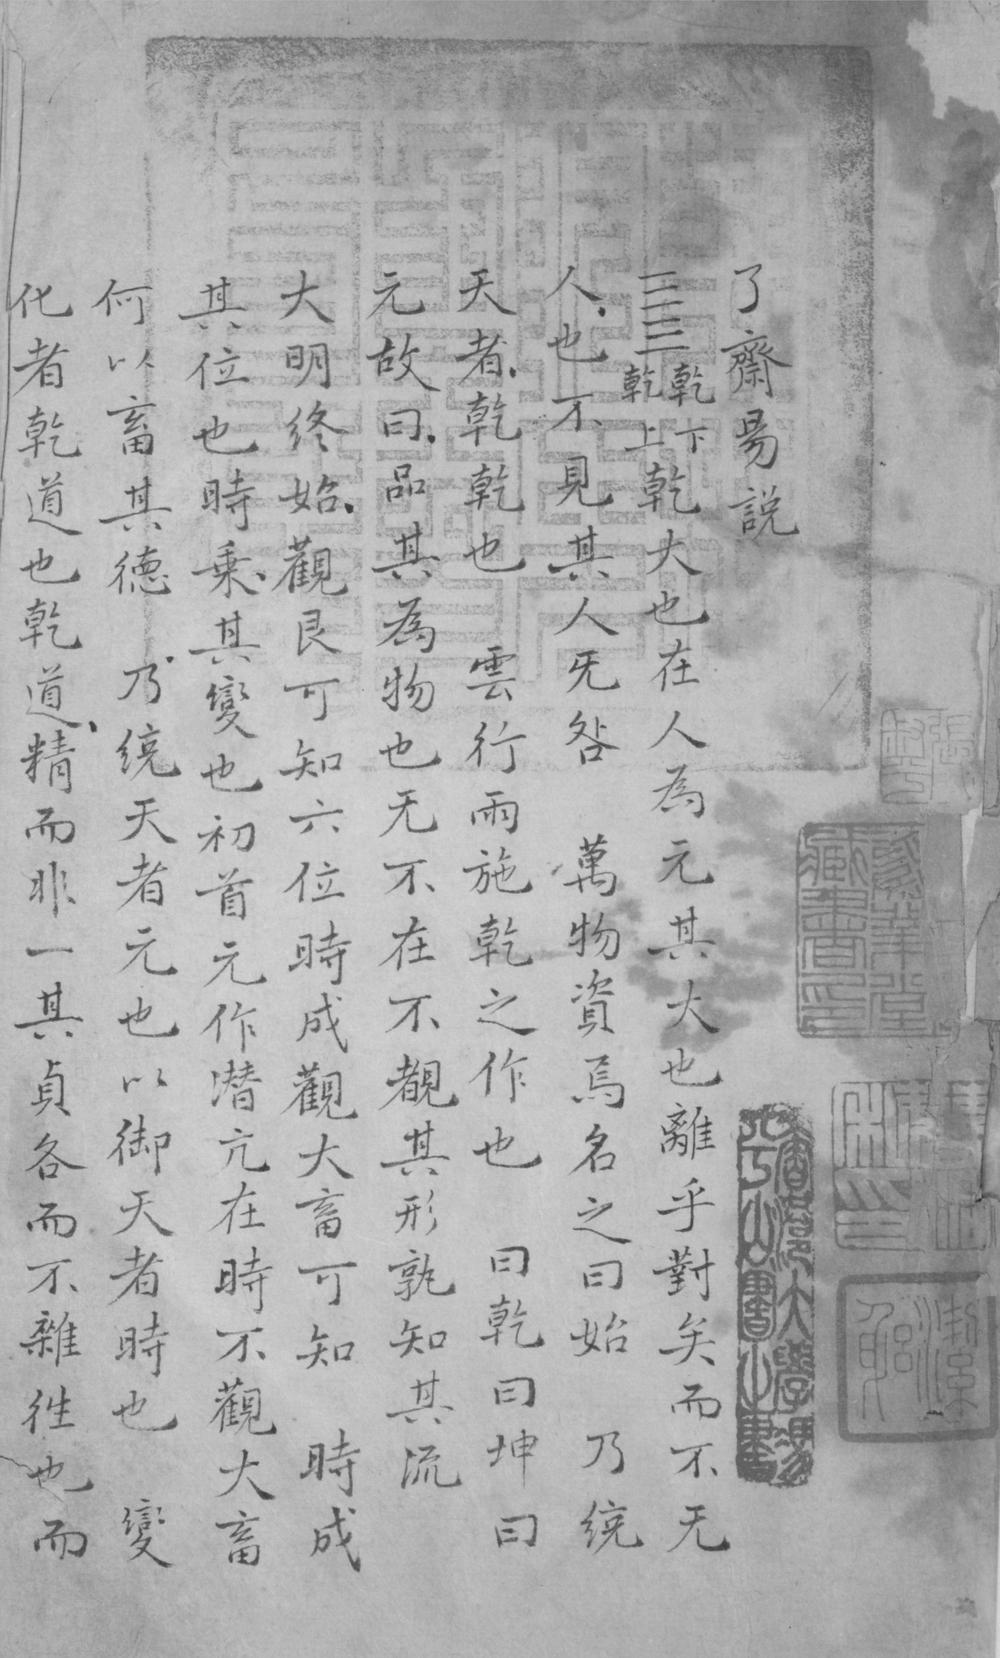 了齋易說
䷀乾下乾上乾大也在人為元其大也離乎對矣而不无
人也不見其人旡咎　萬物資焉名之曰始　乃統
天者乾乾也　雲行雨施乾之作也　曰乾曰坤曰
元故曰品其為物也无不在不覩其形孰知其流
大明終始觀艮可知六位時成觀大畜可知　時成
其位也時乘其變也初首元作潛亢在時不觀大畜
何以畜其德　乃統天者元也以御天者時也　變
化者乾道也乾道精而非一其貞各而不雜徃也而